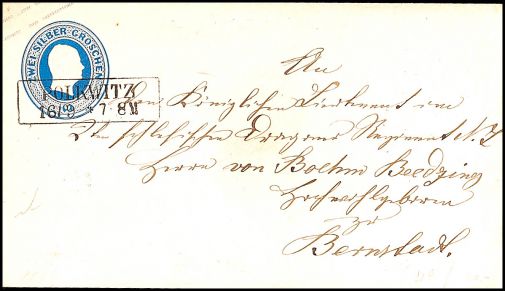 ZWEI SILBER-GROSCHEN
POLKWITZ
16/9 * 7-8 N
An
den Königlichen Lieutenant im
2ten schlesischen Dragoner Regiment N. 8
Herrn von Boehm Beedzing
Hochwohlgeboren
zu
Bernstadt.